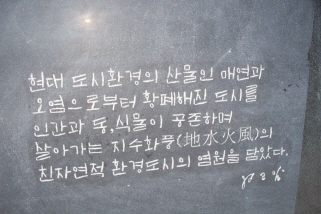 현대 도시환경의 산물인 매연과
오염으로부터 황폐해진 도시를
인간과 동,식물이 공존하며
살아가는 지수화풍(地水火風)의
친자연적 환경도시의 염원을 담았다.